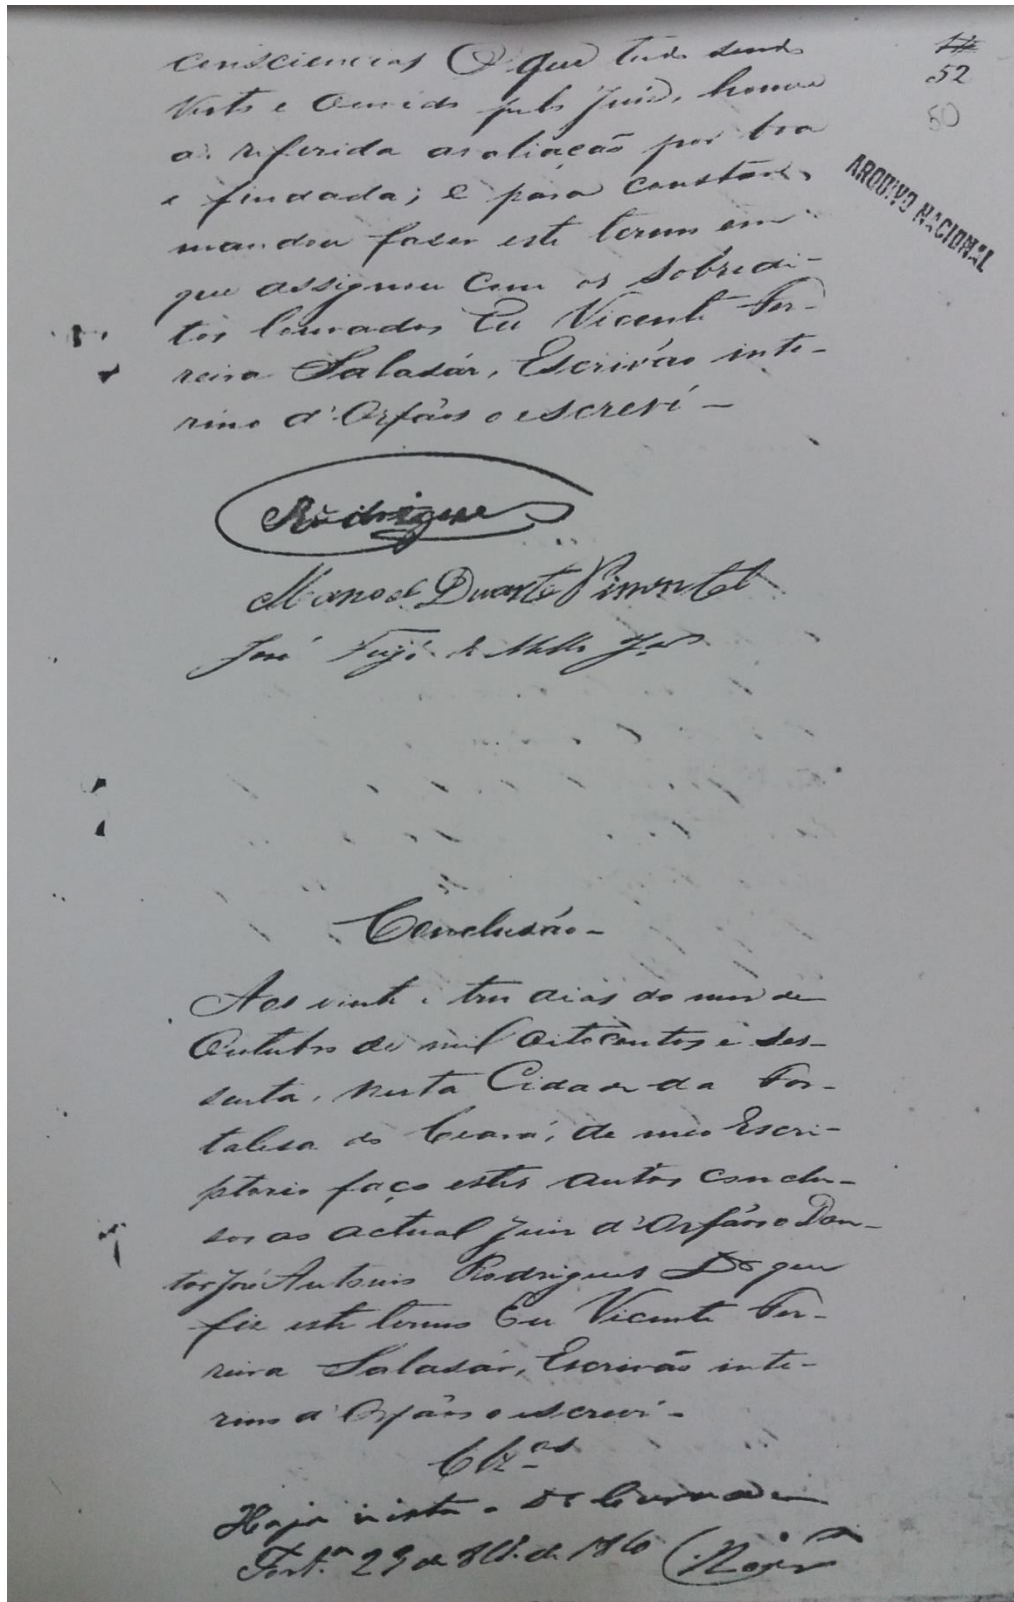 consciencias O que tudo sendo
visto e ouvido pelo Juiz, houve
a referida avaliação por boa
e fundada; e para constar,
mandou faser este termo em
que assignou com os sobredi-
tos louvados Eu Vicente Fer-
reira Salasár, Escrivão inte-
rino d'Orfãos o escreví -
Rodrigues
Manoel Duarte Pimentel
José Feijó de Mello Jor
52
50
ARQUIVO NACIONAL
Conclusão -
Aos vinte e tres dias do mes de
Outubro de mil oitocentos e ses-
senta, nesta Cidade da For-
talesa do Ceará, de meo Escri-
ptorio faço estes autos conclu-
sos ao actual Juiz d'Orfãos o Dou-
tor José Antonio Rodrigues Do que
fiz este termo Eu Vicente Fer-
reira Salasár, Escrivão inte-
rino d'Orfãos o escreví -
Clzos
Haja vista o Dr Curador
Forta 29 de 8bro de 1860